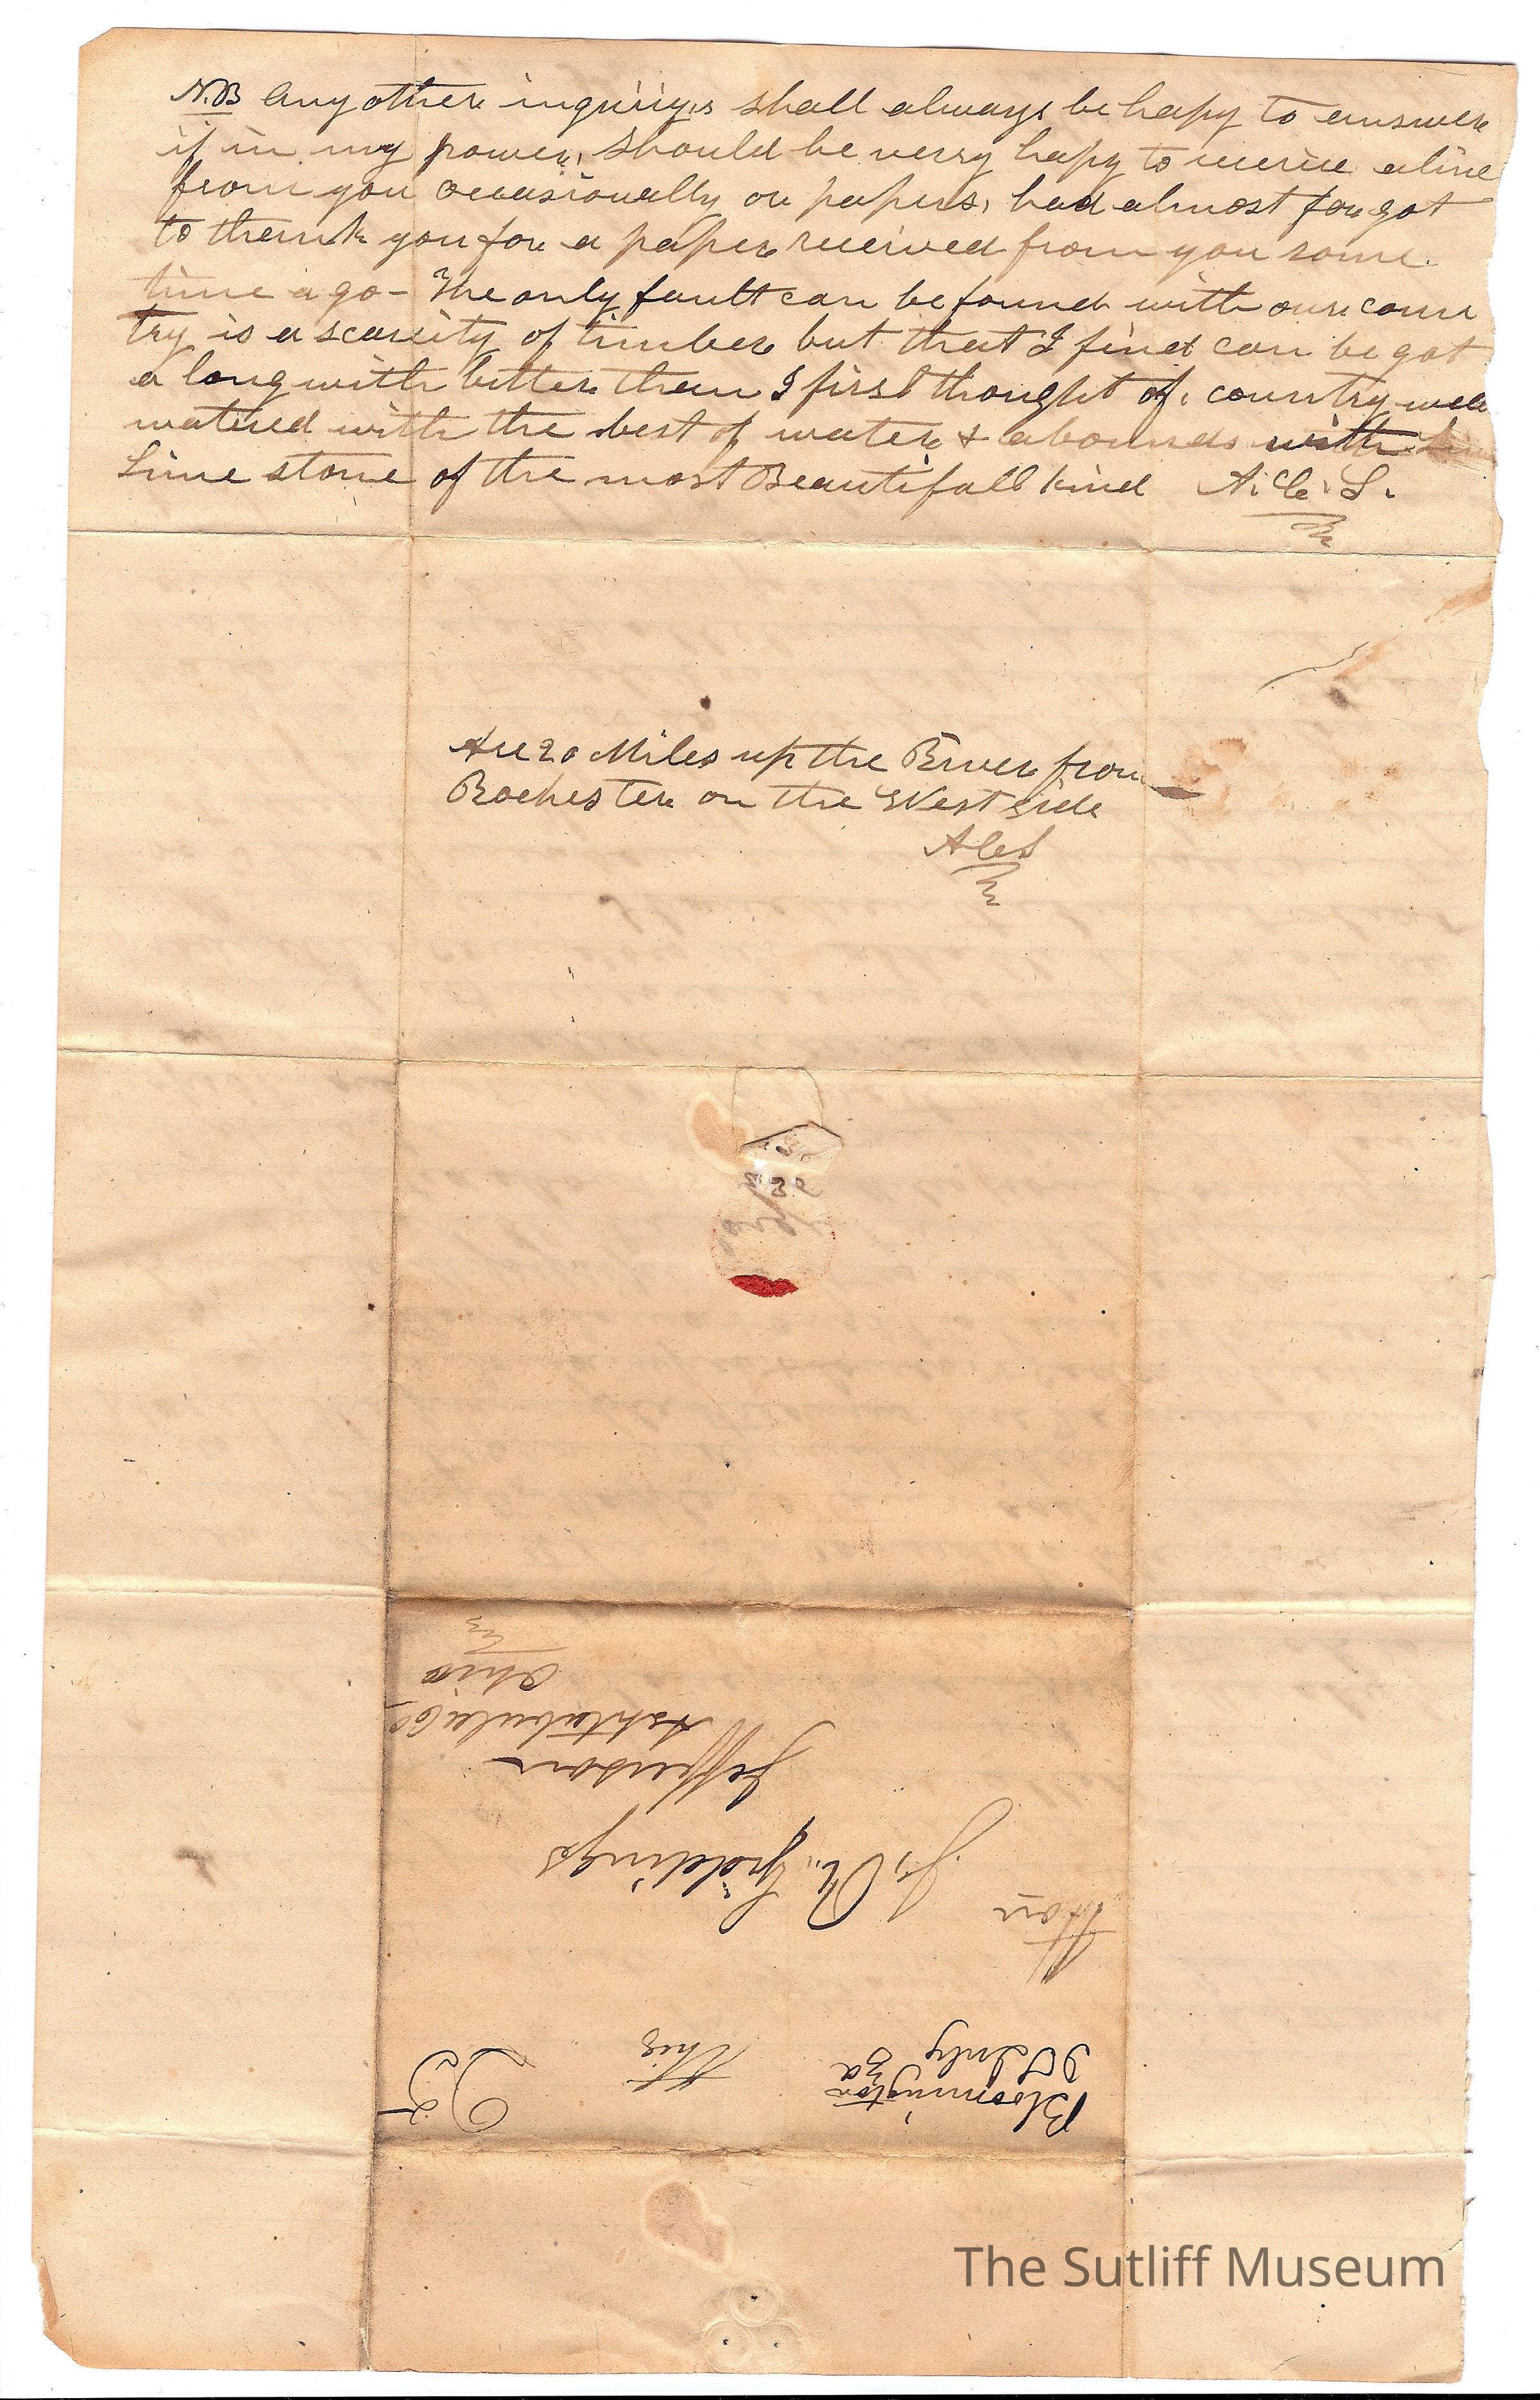 N.B Any other inquiryes shall always be hapy to answer
if in my power, should be verry hapy to receive a line
from you occasionally or papers, had almost forgot
to thank you for a paper received from you some
time a go - The only fault can be found with our coun
try is a scarcity of timber but that I find can be got
a long with better than I first thought of. country well
watered with the best of water & abounds with
Lime stone of the most Beautifull kind A. C. S.
20 Miles up the River from
Rochester on the West side
ACS
Bloomington
July
this
25
Hon
J. R. Giddings
Jefferson
Ashtabula Co
Ohio
The Sutliff Museum